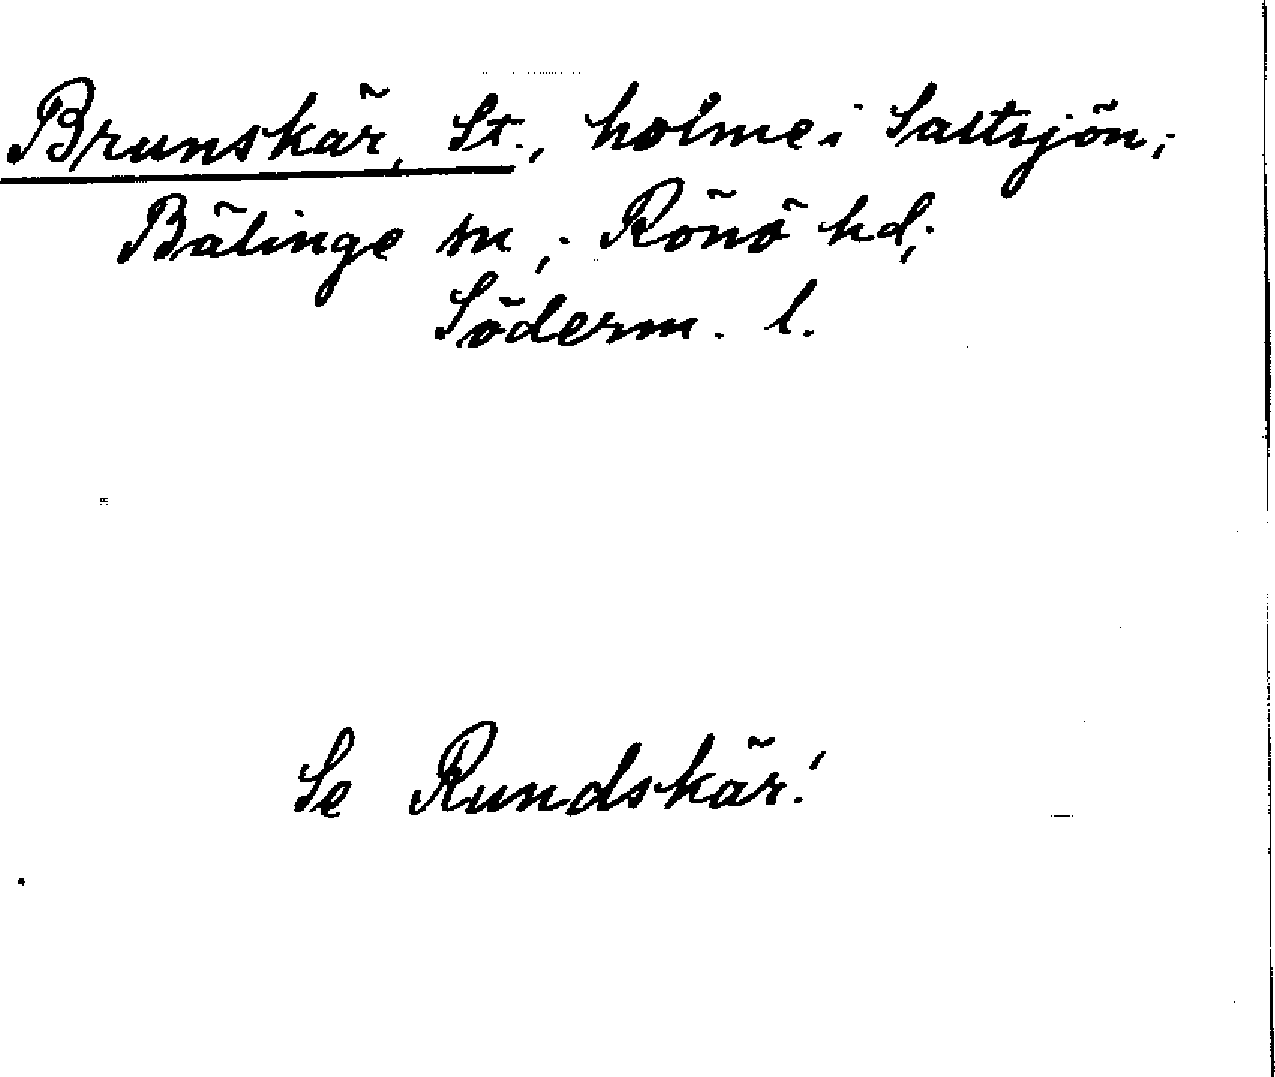 Brunskär, St., holme i Saltsjön;
Bälinge sn; Rönö hd;
Söderm. l.
Se Rundskär!